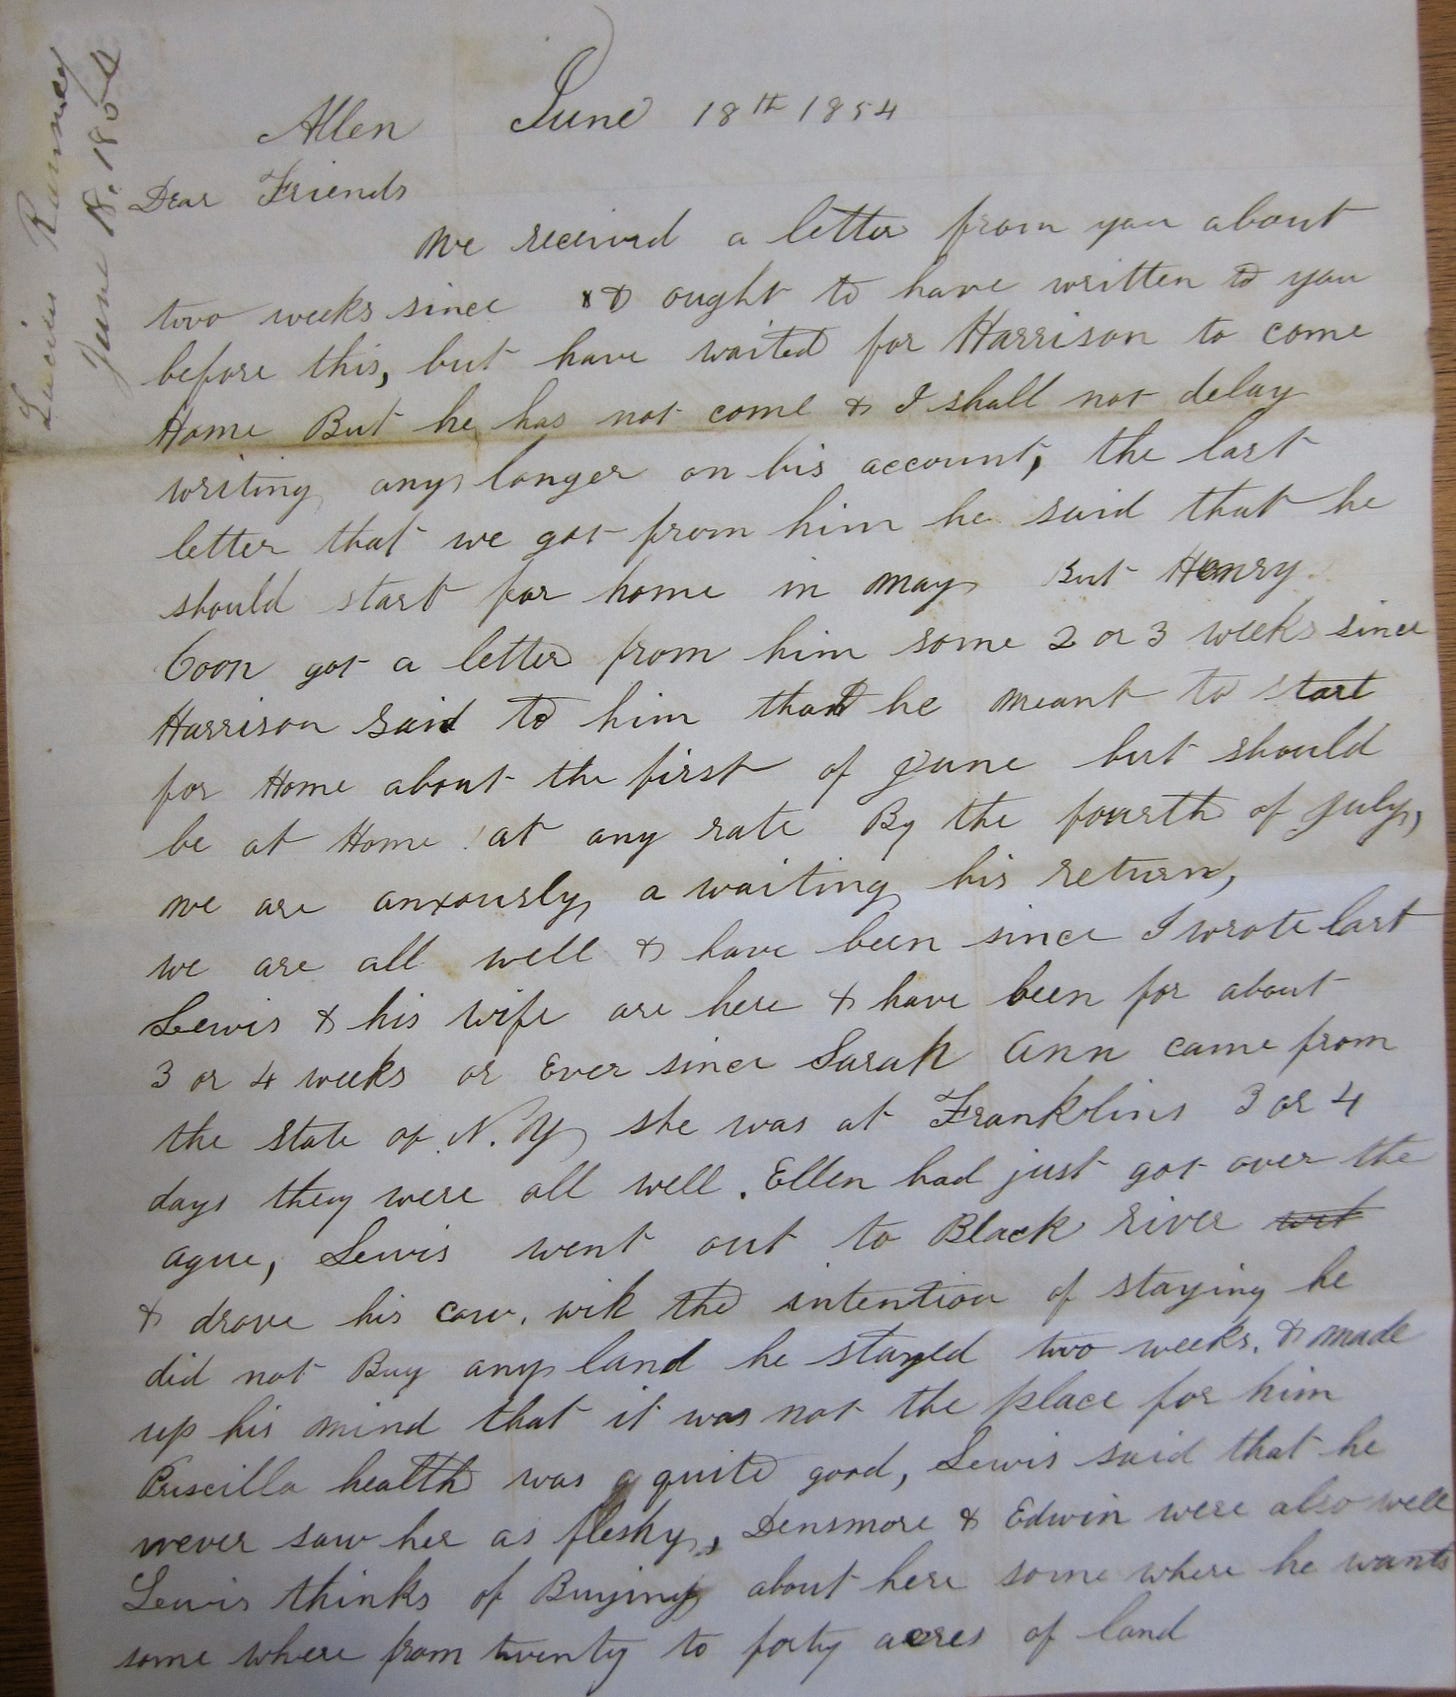 Lucius Ranney
June 18. 1854
Allen June 18th 1854
Dear Friends
We received a letter from you about
two weeks since & ought to have written to you
before this, but have waited for Harrison to come
Home But he has not come & I shall not delay
writing any longer on his account, the last
letter that we got from him he said that he
should start for home in may But Henry
Coon got a letter from him some 2 or 3 weeks since
Harrison said to him that he meant to start
for Home about the first of June but should
be at Home at any rate By the fourth of July,
we are anxously a waiting his return,
we are all well & have been since I wrote last
Lewis & his wife are here & have been for about
3 or 4 weeks or Ever since Sarah Ann came from
the state of N. Y she was at Franklins 3 or 4
days they were all well. Ellen had just got over the
ague, Lewis went out to Black river wit
& drove his cow. with the intention of staying he
did not Buy any land he stayed two weeks. & made
up his mind that it was not the place for him
Priscilla health was quite good, Lewis said that he
never saw her as fleshy, Densmore & Edwin were also well
Lewis thinks of Buying about here some where he wants
some where from twenty to forty acres of land